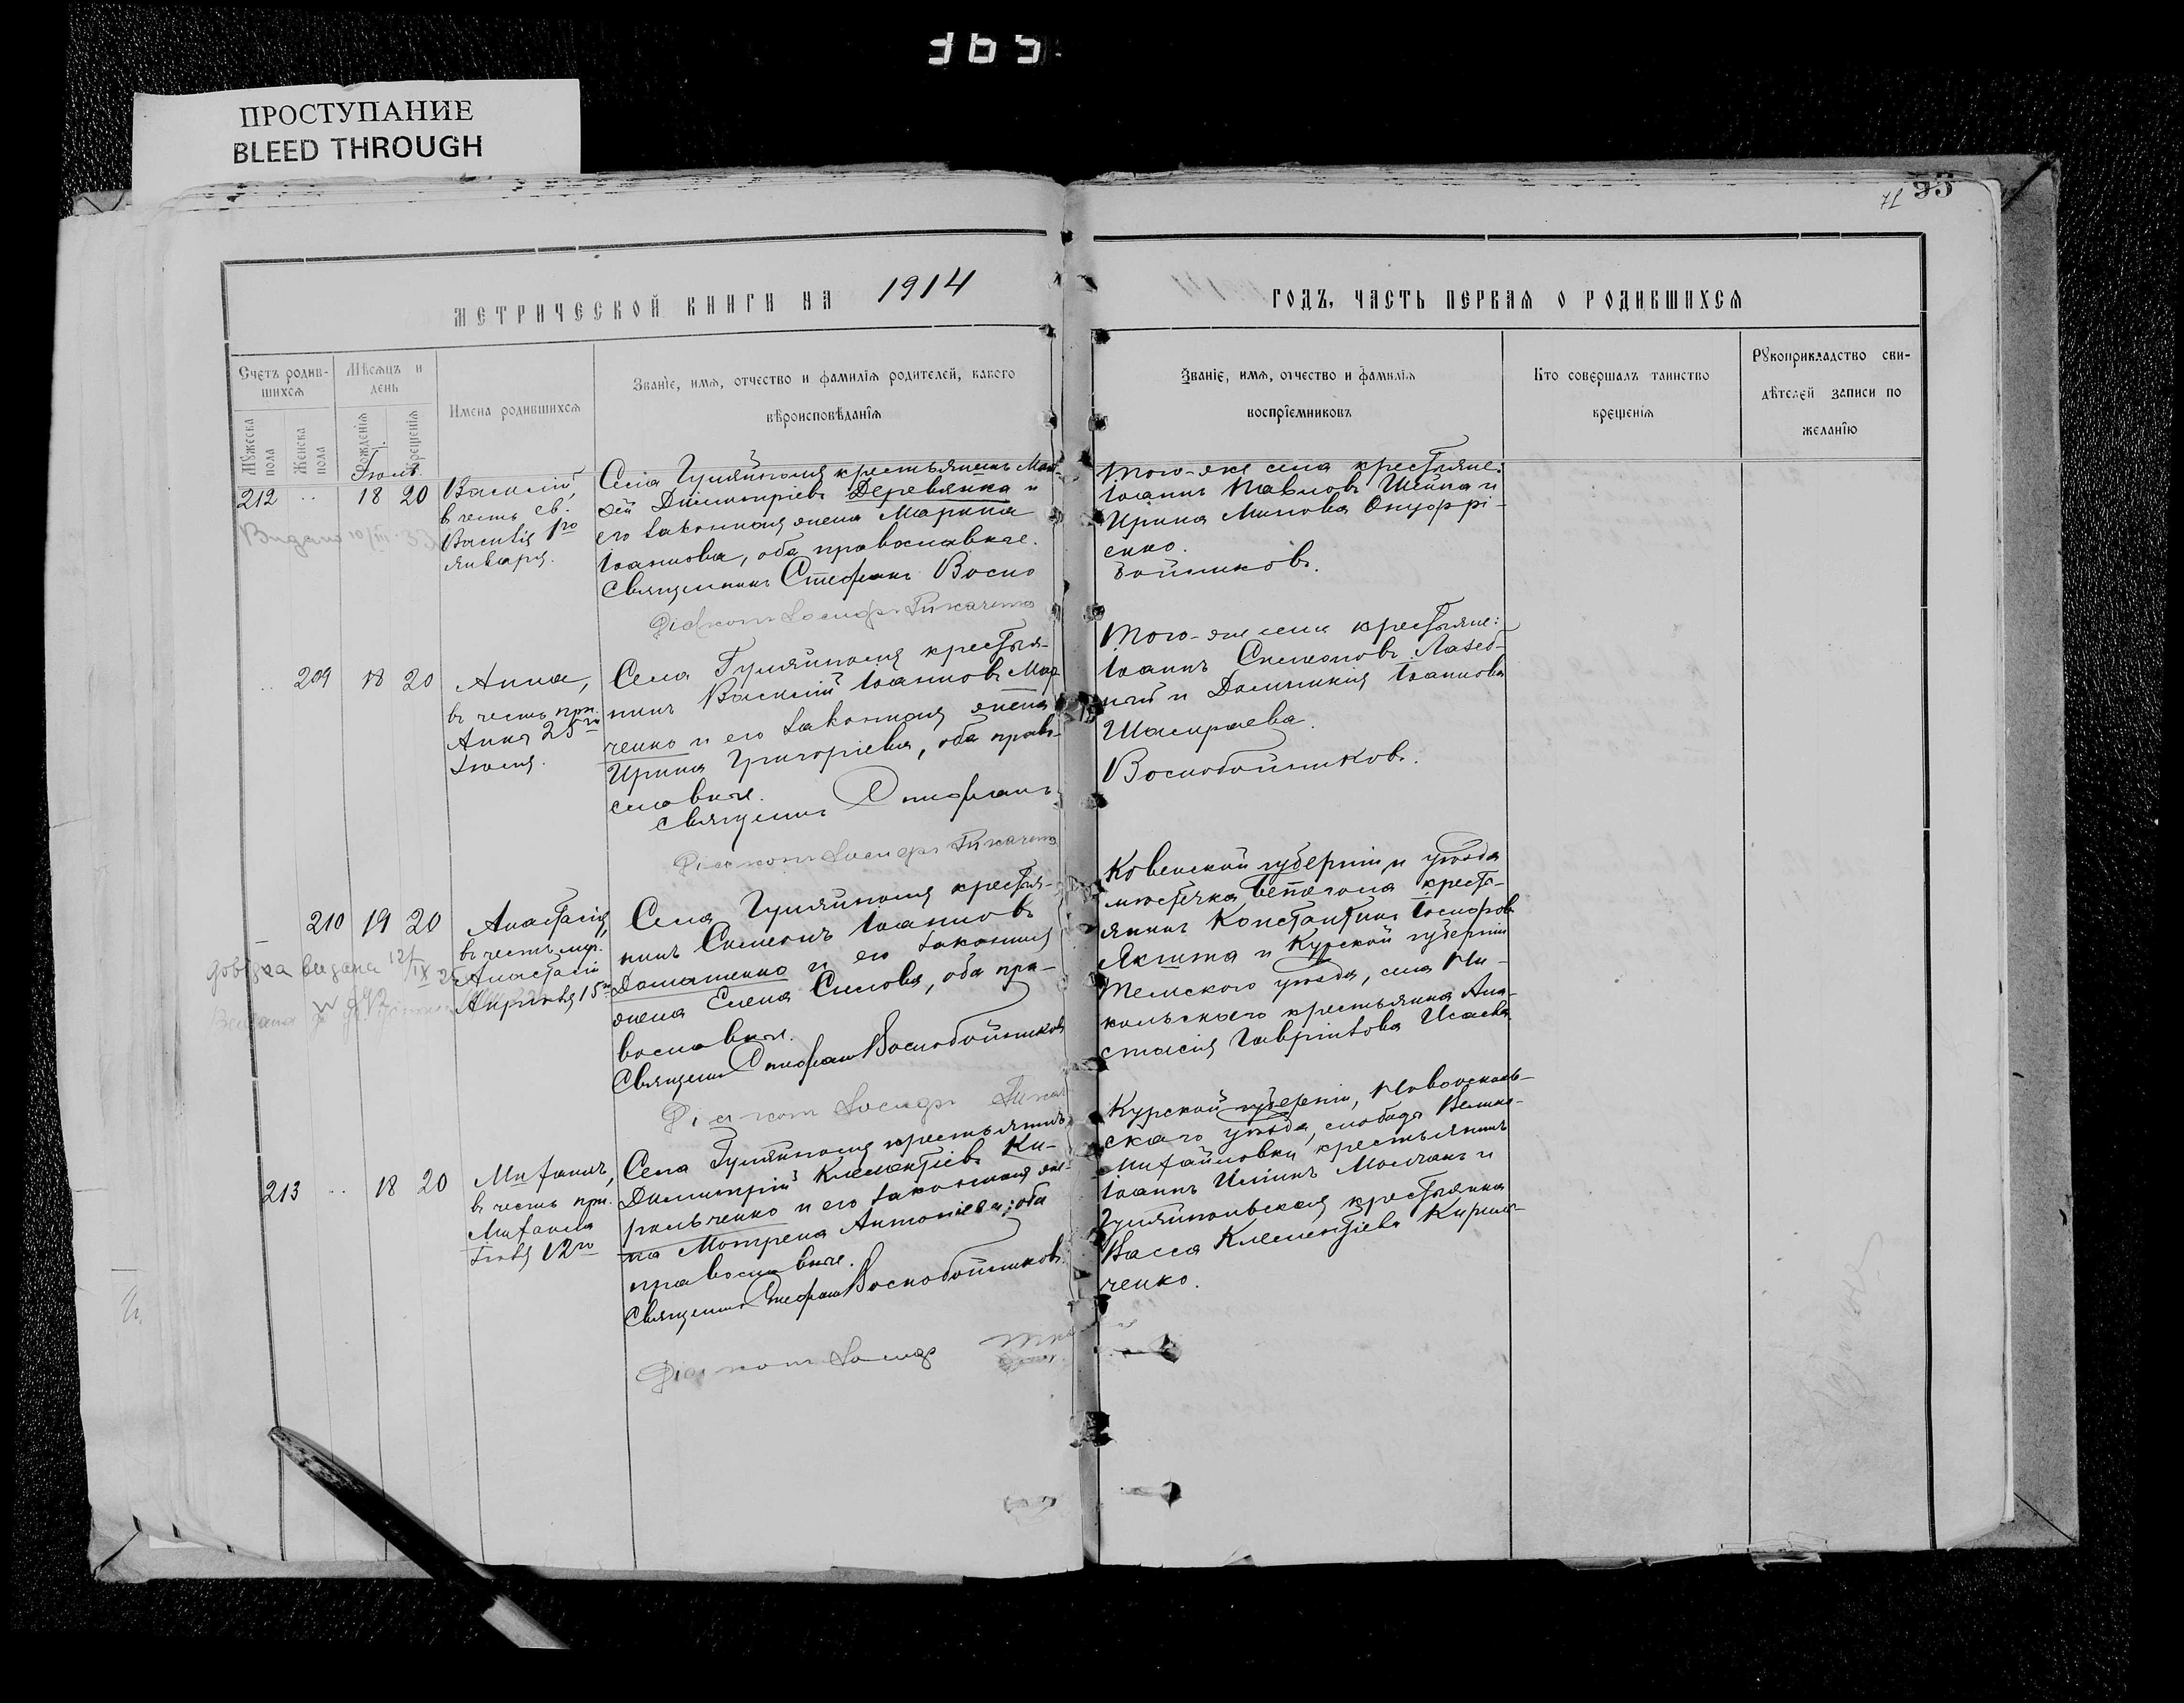 365
ПРОСТУПАНИЕ
BLEED THROUGH
71 93
МЕТРИЧЕСКОЙ КНИГИ НА 1914
ГОДЪ, ЧАСТЬ ПЕРВАЯ О РОДИВШИХСЯ
Счетъ родив-
шихся
Мужеска пола
Женска пола
Мѣсяцъ и день
Рожденія
Крещенія
Имена родившихся
Званіе, имя, отчество и фамилія родителей, какого
вѣроисповѣданія
Званіе, имя, отчество и фамилія
воспріемниковъ
Кто совершалъ таинство
крещенія
Рукоприкладство сви-
дѣтелей записи по
желанію
Іюль.
212 .. 18 20
Василій,
в честь св.
Василія 1го
января.
Села Гуляйполя крестьянинъ
Димитріевъ Деревянка и
его законная жена Марина
Іоаннова, оба православные.
Священникъ Стефанъ Воско
Діаконъ Іосифъ
Того-же села крестьяне:
Іоаннъ Павловъ Шейка и
Ирина Минова Онуфрі-
енко.
бойниковъ.
.. 209 18 20
Анна,
въ честь
Анны 25го
Іюля.
Села Гуляйполя крестья-
нинъ Василій Іоанновъ Мар
ченко и его законная жена
Ирина Григоріева, оба право-
славные.
Священникъ Стефанъ
Діаконъ Іосифъ
Того-же села крестьяне:
Іоаннъ Симеоновъ Лазеб-
ный и Домникія Іоаннова
Шаираева.
Воскобойниковъ.
210 19 20
Анастасія,
въ честь муч.
Анастасіи
Апрѣля 15го
довідка видана 12/IX 25
Села Гуляйполя крестья-
нинъ Симеонъ Іоанновъ
Домашенко и его законная
жена Елена Силова, оба пра-
вославные.
Священникъ Стефанъ Воскобойниковъ
Діаконъ Іосифъ
Ковенской губерніи и уѣзда
мѣстечка крест-
янинъ Константинъ Іосифовъ
и Курской губерніи
уѣзда, села Ни-
кольскаго крестьянка Ана-
стасія Гавріилова Исаева.
213 .. 18 20
Михаилъ,
въ честь
Михаила
12го
Села Гуляйполя крестьянинъ
Димитрій Климентіевъ Ки-
рильченко и его законная же-
на Мотрена Антоніева, оба
православные.
Священникъ Стефанъ Воскобойниковъ.
Діаконъ Іосифъ
Курской губерніи, Новооскольскаго
уѣзда, слободы Велико-
михайловки крестьянинъ
Іоаннъ Ильинъ Молчанъ и
Гуляйпольская крестьянка
Васса Климентіева Кириль-
ченко.